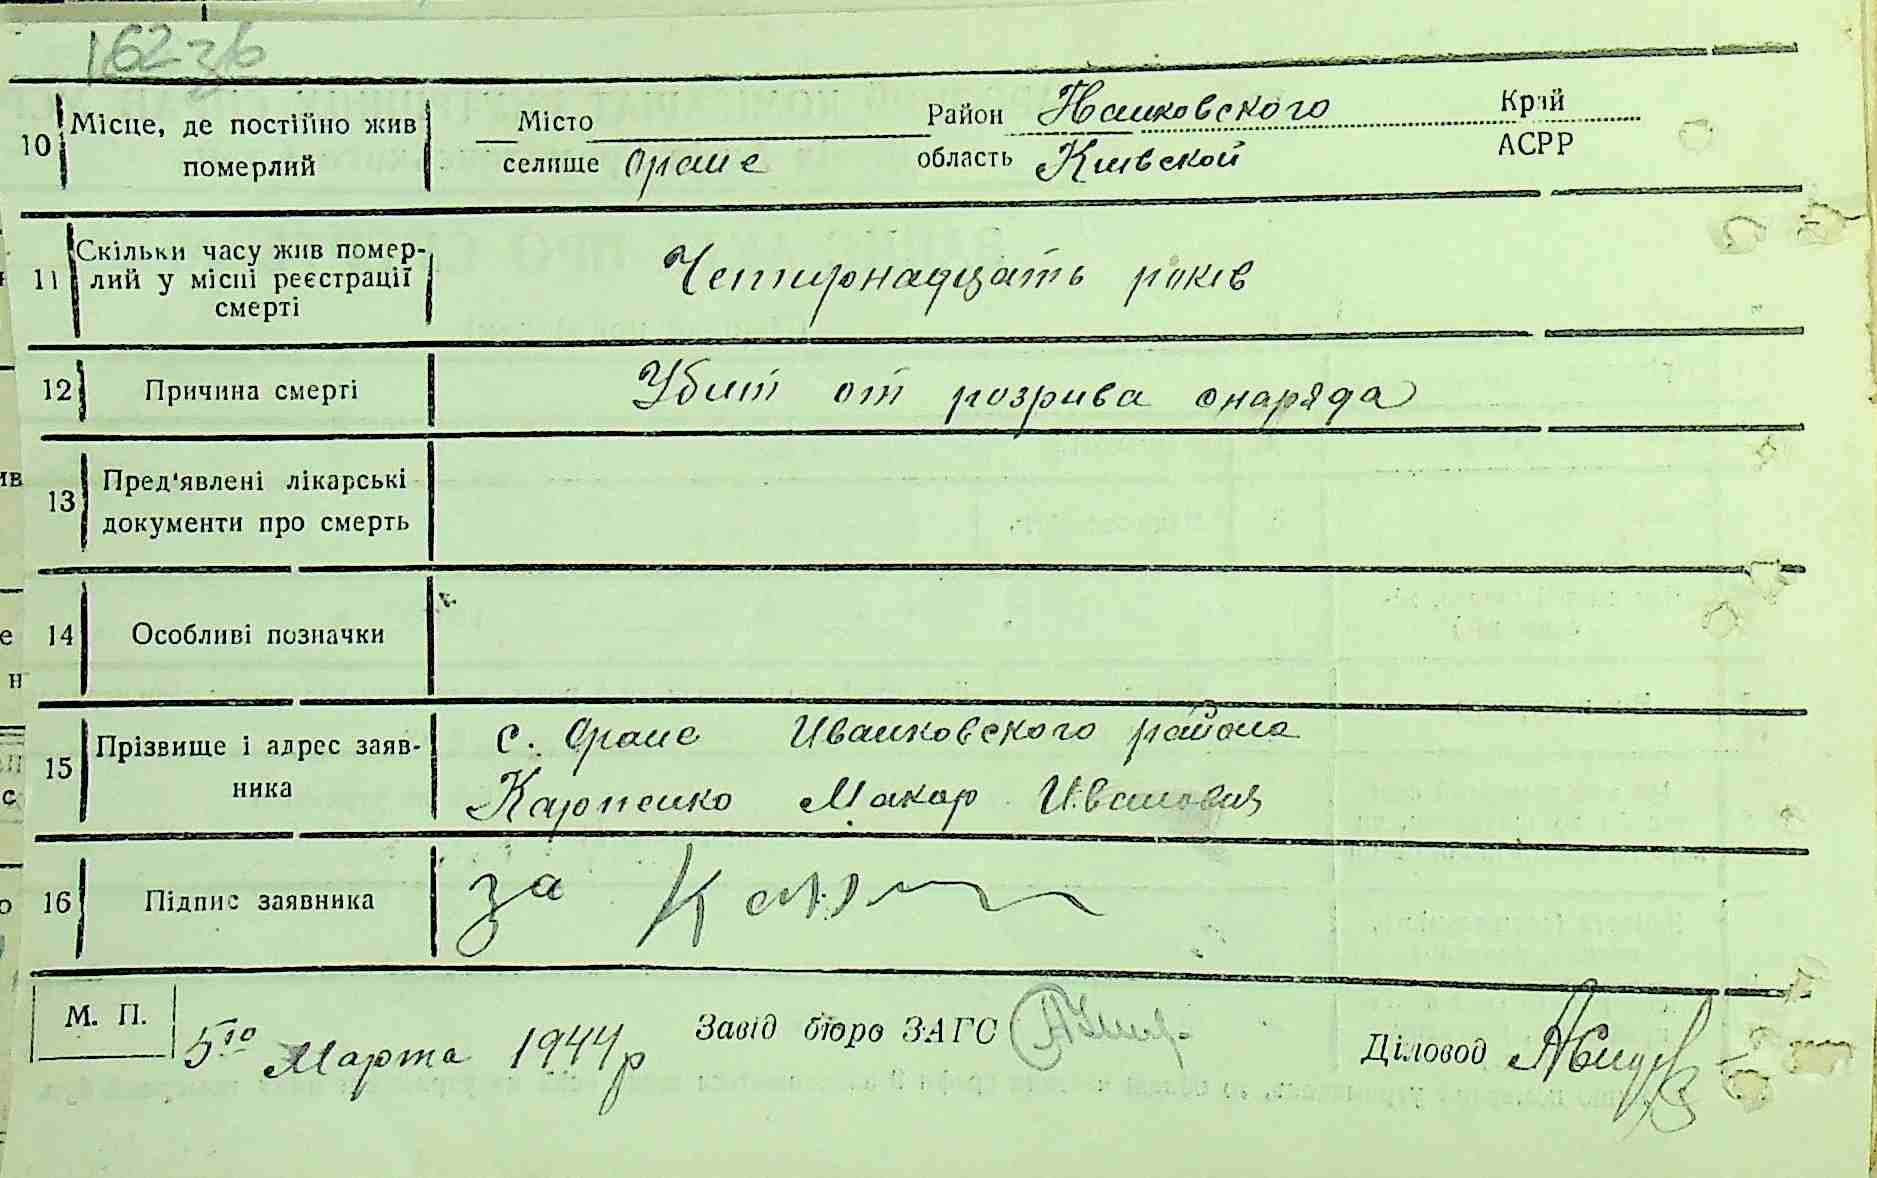 162 зб
10 Місце, де постійно жив померлий
Місто Район Иванковского Край
селище Оране область Киівской АСРР
11 Скільки часу жив помер-
лий у місці реєстрації
смерті
Четирнадцять років
12 Причина смерті Убит от розрива снаряда
13 Пред'явлені лікарські
документи про смерть
14 Особливі позначки
15 Прізвище і адрес заяв-
ника
с. Оране Иванковского района
Карпенко Макар Иванович
16 Підпис заявника за Карп
М. П. 5го Марта 1944 р Завід бюро ЗАГС Діловод